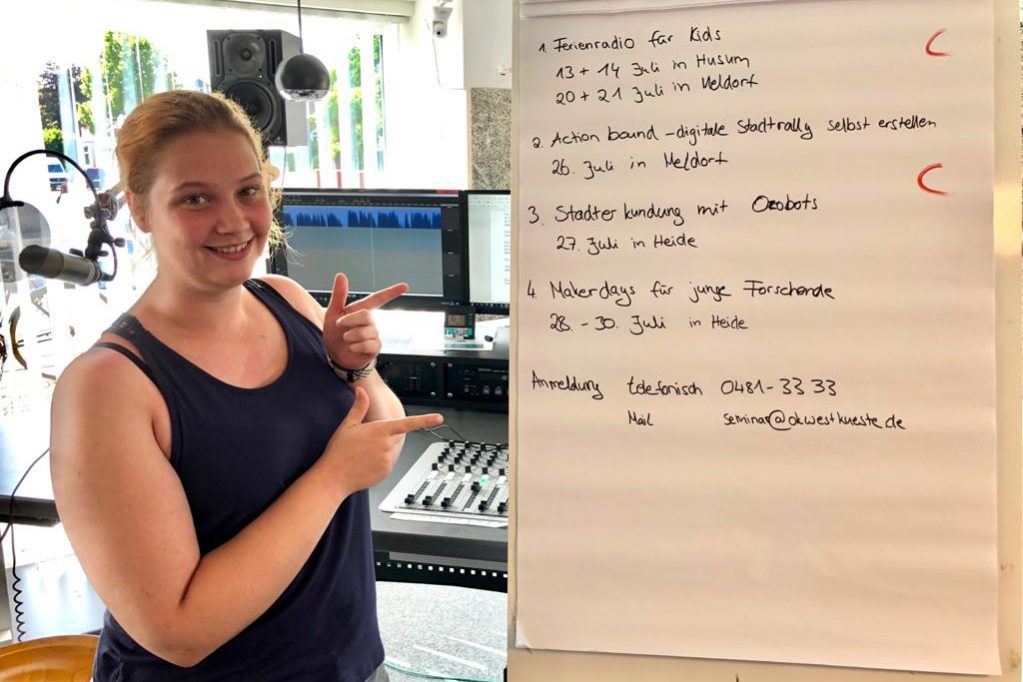 1. Ferienradio für Kids
13 + 14 Juli in Husum
20 + 21 Juli in Meldorf
2. Action bound - digitale Stadtrally selbst erstellen
26. Juli in Meldorf
3. Stadterkundung mit Ozobots
27. Juli in Heide
4. Makerdays für junge Forschende
28. - 30. Juli in Heide
Anmeldung telefonisch 0481 - 33 33
Mail seminar@okwestkueste.de